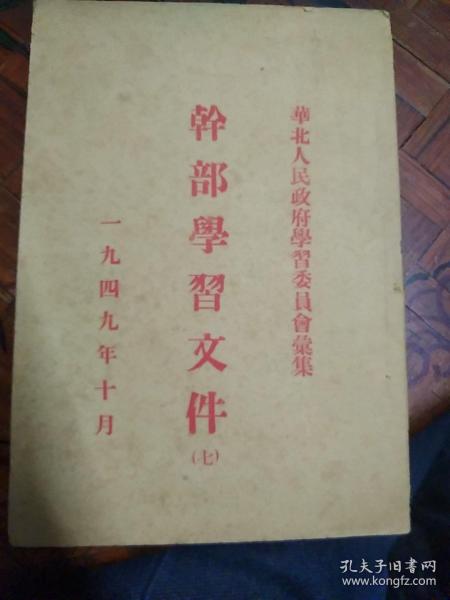 華北人民政府學習委員會彙集
幹部學習文件
(七)
一九四九年十月
孔夫子旧书网
www.kongfz.com